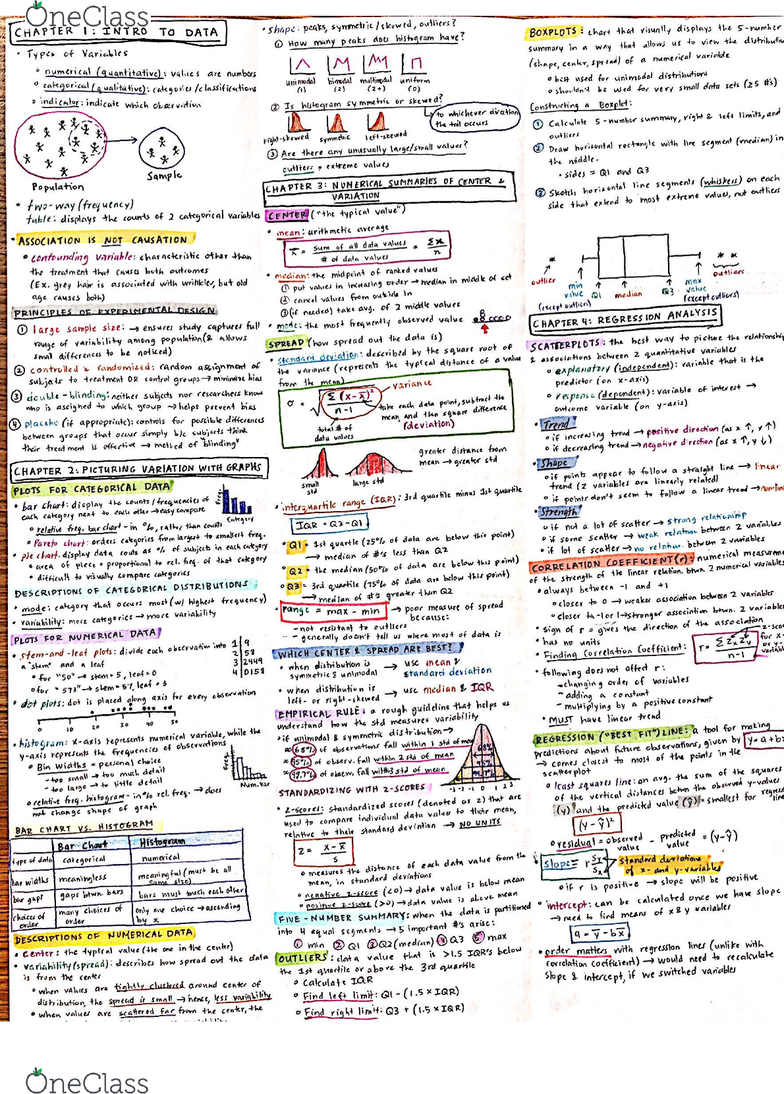 OneClass
CHAPTER 1: INTRO TO DATA
• Types of Variables
o numerical (quantitative): values are numbers
o categorical (qualitative): categories/classifications
o indicator: indicate which observation
Population
Sample
• two-way (frequency)
table: displays the counts of 2 categorical variables
• ASSOCIATION IS NOT CAUSATION
• confounding variable: characteristic other than
the treatment that causes both outcomes
(Ex. grey hair is associated with wrinkles, but old
age causes both)
PRINCIPLES OF EXPERIMENTAL DESIGN
① large sample size: → ensures study captures full
range of variability among population (& allows
small differences to be noticed)
② controlled & randomized: random assignment of
subjects to treatment OR control groups → minimize bias
③ double-blinding: neither subjects nor researchers know
who is assigned to which group → helps prevent bias
④ placebo (if appropriate): controls for possible differences
between groups that occur simply b/c subjects think
their treatment is effective → method of blinding!
CHAPTER 2: PICTURING VARIATION WITH GRAPHS
PLOTS FOR CATEGORICAL DATA
• bar chart: display the counts/frequencies of
each category next to each other → easy compare
o relative freq. bar chart - in %, rather than counts
o Pareto chart: orders categories from largest to smallest freq.
Category
• pie chart: display data counts as % of subjects in each category
o area of piece = proportional to rel. freq. of that category
o difficult to visually compare categories
DESCRIPTIONS OF CATEGORICAL DISTRIBUTIONS
• mode: category that occurs most (w/ highest frequency)
• variability: more categories → more variability
PLOTS FOR NUMERICAL DATA
• stem-and-leaf plots: divide each observation into
a "stem" and a leaf
o for "50" → stem = 5, leaf = 0
o for "573" → stem = 57, leaf = 3
1 | 9
2 | 58
3 | 2449
4 | 0158
• dot plots: dot is placed along axis for every observation
0 10 20 30 40 50
• histogram: x-axis represents numerical variable, while the
y-axis represents the frequencies of observations
o Bin Widths = personal choice
- too small → too much detail
- too large → to little detail
Num.Var
o relative freq. histogram - in % rel. freq. → does
not change shape of graph
BAR CHART VS. HISTOGRAM
Bar Chart Histogram
type of data categorical numerical
bar widths meaningless meaningful (must be all same size)
bar gaps gaps btwn. bars bars must touch each other
choices of order many choices of order only one choice → ascending by x
DESCRIPTIONS OF NUMERICAL DATA
• Center: the typical value (the one in the center)
• Variability (spread): describes how spread out the data
is from the center
• when values are tightly clustered around center of
distribution, the spread is small → hence, less variability
• when values are scattered far from the center, the
• shape: peaks, symmetric/skewed, outliers?
① How many peaks does histogram have?
unimodal (1) bimodal (2) multimodal (2+) uniform (0)
② Is histogram symmetric or skewed?
to whichever direction
the tail occurs
right-skewed symmetric left-skewed
③ Are there any unusually large/small values?
outliers = extreme values
CHAPTER 3: NUMERICAL SUMMARIES OF CENTER &
VARIATION
CENTER ("the typical value")
• mean: arithmetic average
x̄ = sum of all data values / # of data values = Σx / n
• median: the midpoint of ranked values
① put values in increasing order → median in middle of set
② cancel values from outside in
③ (if needed) take avg. of 2 middle values
• mode: the most frequently observed value
SPREAD (how spread out the data is)
• standard deviation: described by the square root of
the variance (represents the typical distance of a value
from the mean)
variance
σ = √ Σ(x-x̄)² / n-1
take each data point, subtract the
mean, and then square difference
(deviation)
total # of
data values
small std
large std
greater distance from
mean → greater std
• interquartile range (IQR): 3rd quartile minus 1st quartile
IQR = Q3-Q1
• Q1 = 1st quartile (25% of data are below this point)
→ median of #'s less than Q2
• Q2 = the median (50% of data are below this point)
• Q3 = 3rd quartile (75% of data are below this point)
→ median of #'s greater than Q2
• range = max - min → poor measure of spread
because:
- not resistant to outliers
- generally doesn't tell us where most of data is
WHICH CENTER & SPREAD ARE BEST?
• when distribution is
symmetric & unimodal → use mean &
standard deviation
• when distribution is
left- or right-skewed → use median & IQR
EMPIRICAL RULE: a rough guideline that helps us
understand how the std measures variability
• if unimodal & symmetric distribution →
≈68% of observations fall within 1 std of mean
≈95% of observ. fall within 2 std of mean
≈99.7% of observ. fall within 3 std of mean
68%
95%
99.7%
-3 -2 -1 0 1 2 3
STANDARDIZING WITH Z-SCORES
• z-scores: standardized scores (denoted as z) that are
used to compare individual data values to their mean,
relative to their standard deviation → NO UNITS
z = x-x̄ / s
o measures the distance of each data value from the
mean, in standard deviations
o negative z-score (<0) → data value is below mean
o positive z-score (>0) → data value is above mean
FIVE-NUMBER SUMMARY: when the data is partitioned
into 4 equal segments → 5 important #s arise:
① min ② Q1 ③ Q2 (median) ④ Q3 ⑤ max
OUTLIERS: data value that is >1.5 IQR's below
the 1st quartile or above the 3rd quartile
o Calculate IQR
o Find left limit: Q1 - (1.5 × IQR)
o Find right limit: Q3 + (1.5 × IQR)
BOXPLOTS: chart that visually displays the 5-number
summary in a way that allows us to view the distribution
(shape, center, spread) of a numerical variable
o best used for unimodal distributions
o shouldn't be used for very small data sets (≥5 #s)
Constructing a Boxplot:
① Calculate 5-number summary, right & left limits, and
outliers
② Draw horizontal rectangle with line segment (median) in
the middle.
• sides = Q1 and Q3
③ Sketch horizontal line segments (whiskers) on each
side that extend to most extreme values, not outliers
outlier
min value (except outliers)
Q1 median Q3
max value (except outliers)
outliers
CHAPTER 4: REGRESSION ANALYSIS
SCATTERPLOTS: the best way to picture the relationship
& associations between 2 quantitative variables
o explanatory (independent): variable that is the
predictor (on x-axis)
o response (dependent): variable of interest →
outcome variable (on y-axis)
• Trend
o if increasing trend → positive direction (as x ↑, y ↑)
o if decreasing trend → negative direction (as x ↑, y ↓)
• Shape
o if points appear to follow a straight line → linear
trend (2 variables are linearly related)
o if points don't seem to follow a linear trend →
• Strength
o if not a lot of scatter → strong relationship
o if some scatter → weak relation between 2 variables
o if lot of scatter → no relation between 2 variables
CORRELATION COEFFICIENT (r): numerical measure
of the strength of the linear relation btwn. 2 numerical variables
• always between -1 and +1
o closer to 0 → weaker association between 2 variables
o closer to -1 or 1 → stronger association btwn. 2 variables
• sign of r = gives the direction of the association
• has no units
• Finding Correlation Coefficient: r = Σ ZxZy / n-1
• following does not affect r:
- changing order of variables
- adding a constant
- multiplying by a positive constant
• MUST have linear trend
REGRESSION ("BEST FIT") LINE: a tool for making
predictions about future observations, given by y = a+bx
→ comes closest to most of the points in the
scatterplot
o least squares line: on avg. the sum of the squares
of the vertical distances between the observed y-values
(y) and the predicted value (ŷ) = smallest for
(y-ŷ)²
o residual = observed value - predicted value = (y-ŷ)
• slope = r Sy/Sx → standard deviations
of x- and y-variables
o if r is positive → slope will be positive
• intercept: can be calculated once we have slope
→ need to find means of x & y variables
a = ȳ - bx̄
• order matters with regression lines (unlike with
correlation coefficient) → would need to recalculate
slope & intercept, if we switched variables
OneClass